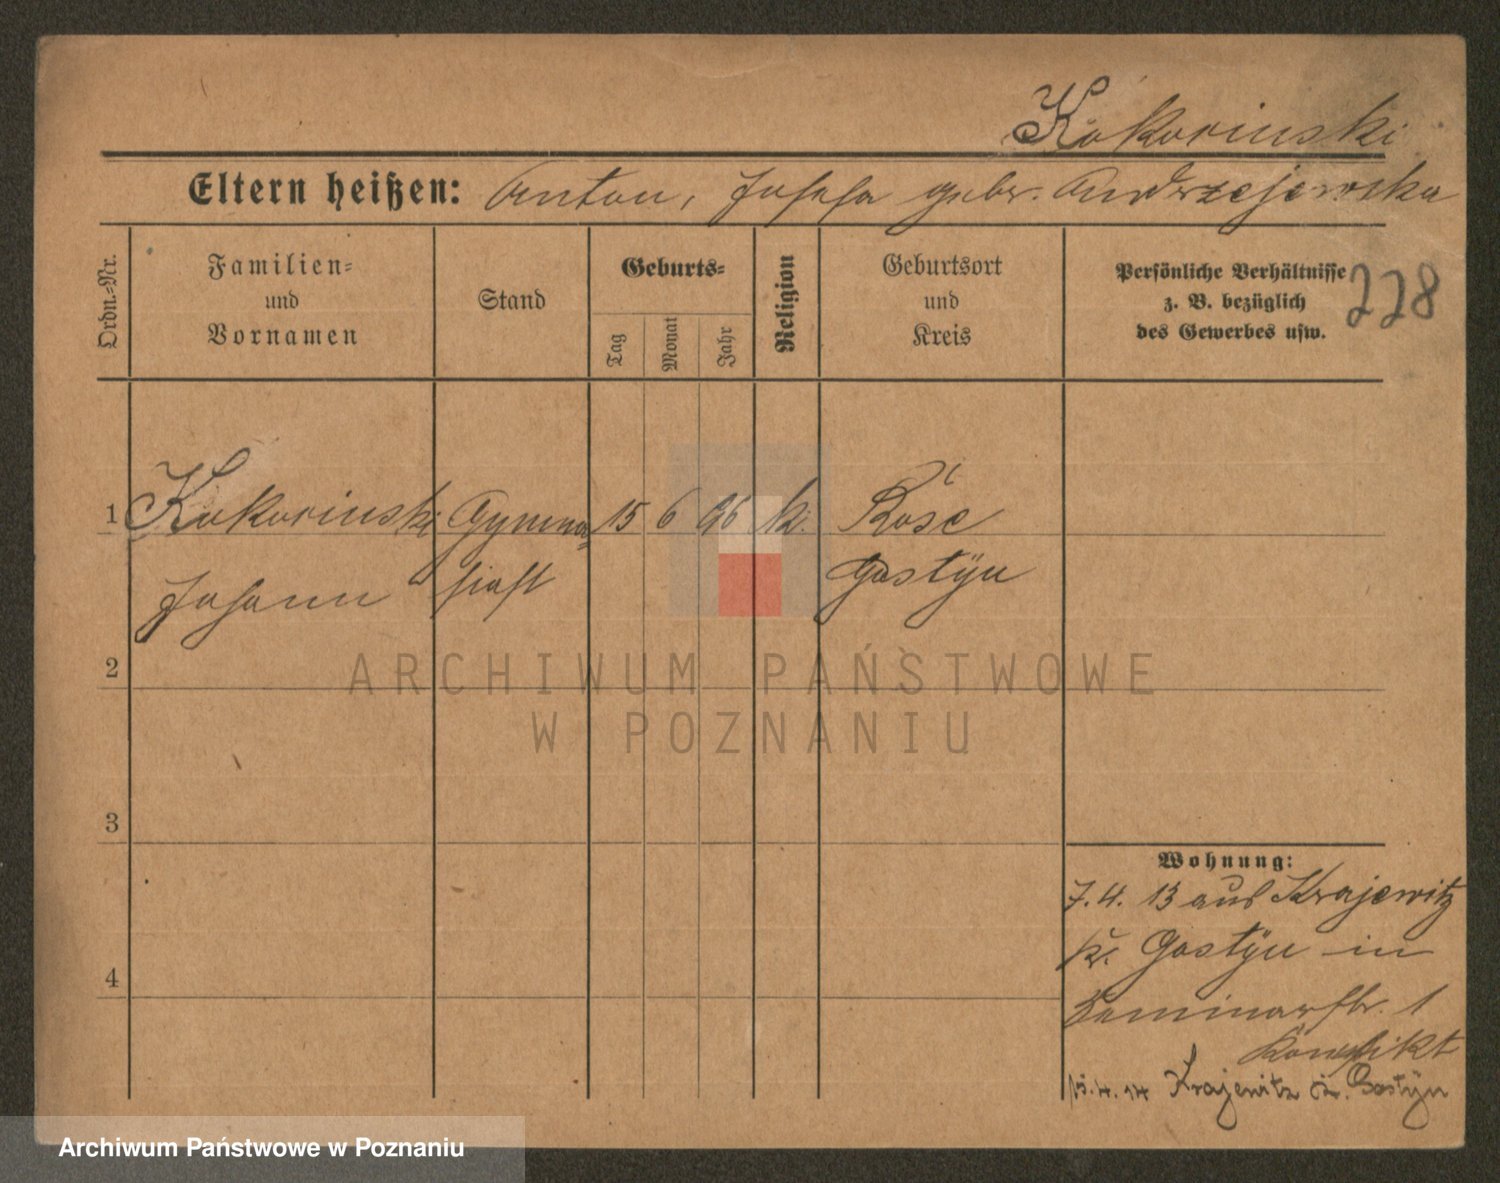 Kokorinski
Eltern heißen: Anton, Josefa gebr. Andrzejewska
Ordn.-Nr.
Familien-
und
Vornamen
Stand
Geburts-
Tag
Monat
Jahr
Religion
Geburtsort
und
Kreis
Persönliche Verhältnisse
z. B. bezüglich
des Gewerbes usw.
228
1 Kokorinski Gymna= 15 6 96 k. Rose
Johann siast Gostÿn
2
3
4
Wohnung:
7.4. 13 aus Krajewitz
kr. Gostÿn in
Seminarstr. 1
Konvikt
15.4.14 Krajewitz Gostÿn
ARCHIWUM PAŃSTWOWE
W POZNANIU
Archiwum Państwowe w Poznaniu